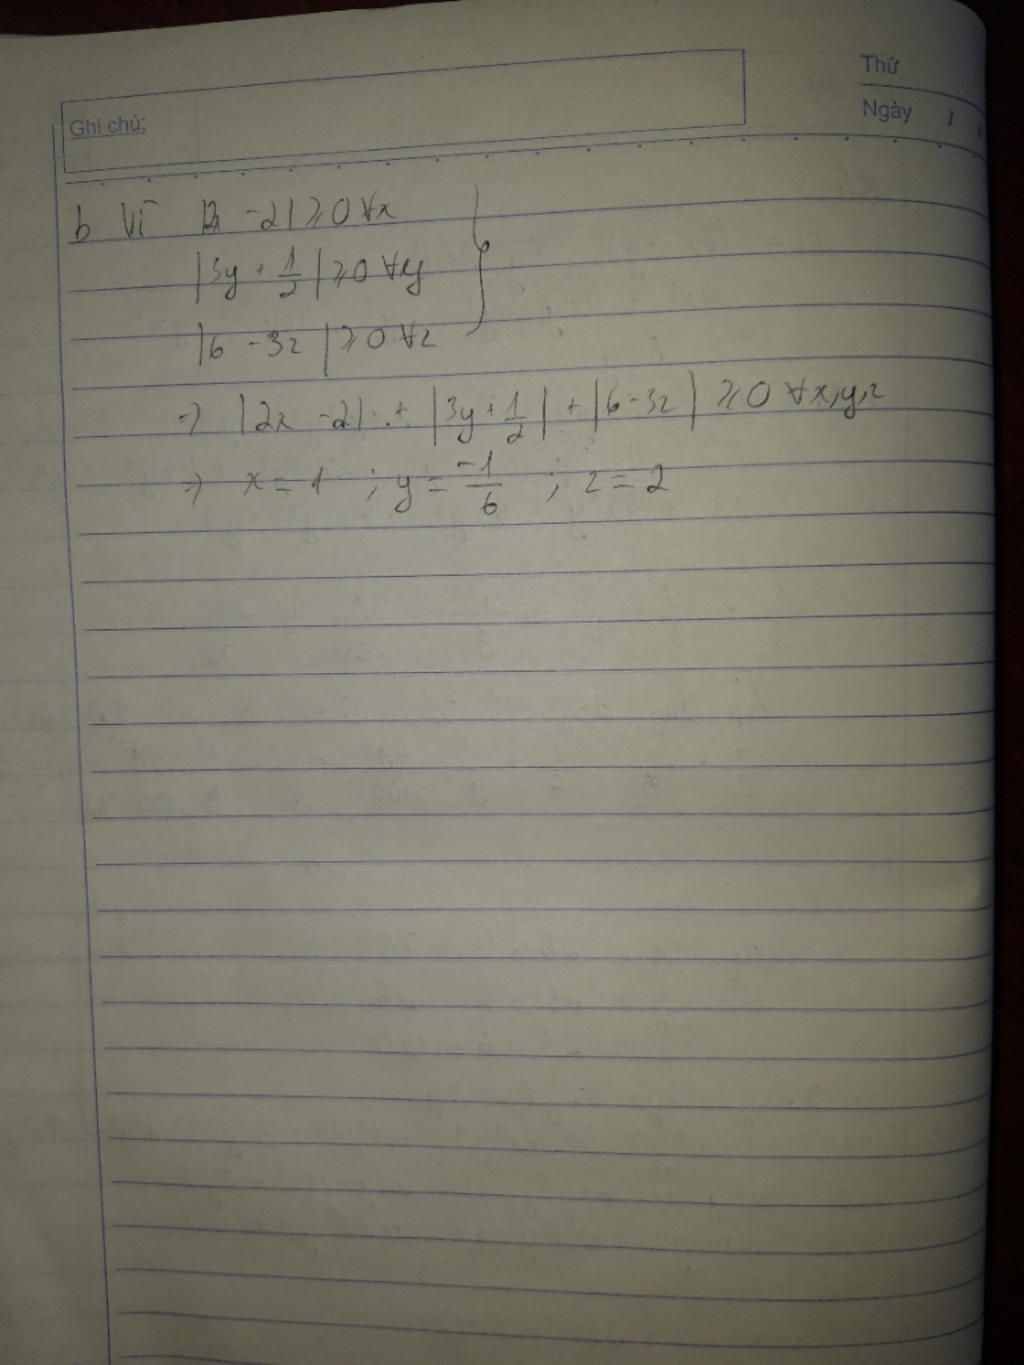 Thứ
Ghi chú:
Ngày
b Vì |2x - 2| ≥ 0 ∀x
|3y + 1/2| ≥ 0 ∀y
|6 - 3z| ≥ 0 ∀z
⇒ |2x - 2| + |3y + 1/2| + |6 - 3z| ≥ 0 ∀x,y,z
⇒ x = 1 ; y = -1/6 ; z = 2